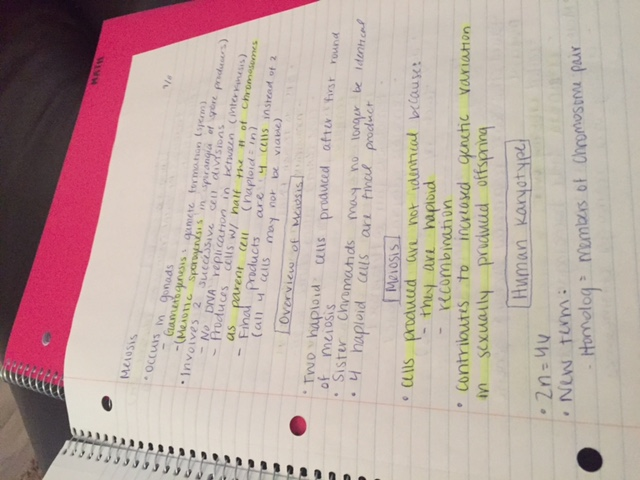 MATH
9/8
Meiosis
• occurs in gonads
- Gametogenesis: gamete formation (sperm)
- (Meiotic sporogenesis in sporangia of spore producers)
• Involves 2 successive cell divisions
- No DNA replication in between (interkinesis)
- Produces cells w/ half the # of chromosomes
as parent cell (haploid: 1n)
- Final products are 4 cells instead of 2
(all 4 cells may not be viable)
Overview of Meiosis
• Two haploid cells produced after first round
of meiosis
• Sister chromatids may no longer be identical
• 4 haploid cells are final product
Meiosis
• cells produced are not identical because:
- they are haploid
- recombination
• contributes to increased genetic variation
in sexually produced offspring
Human Karyotype
• 2n=
• New term:
- Homolog = members of chromosome pair